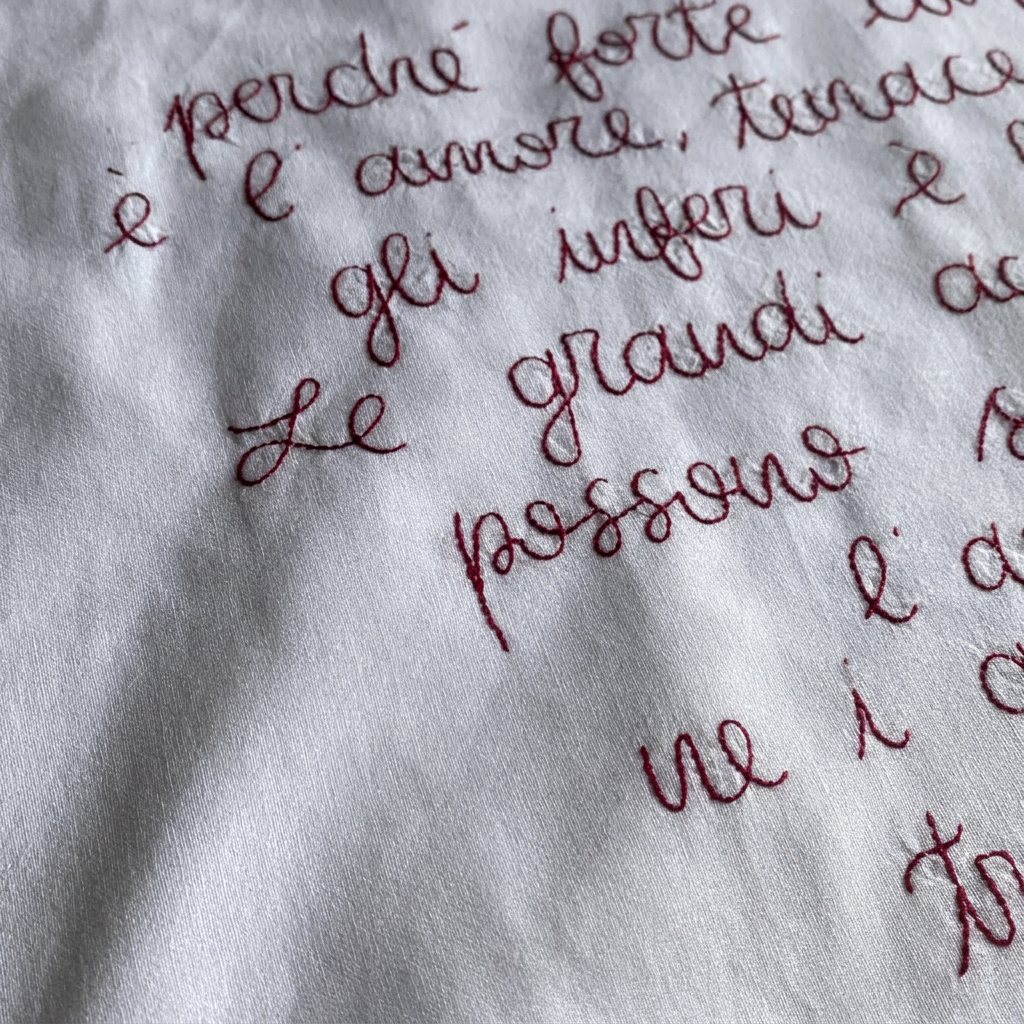 perché forte
è l'amore, tenace
gli inferi è
Le grandi
possono
l'
ne i